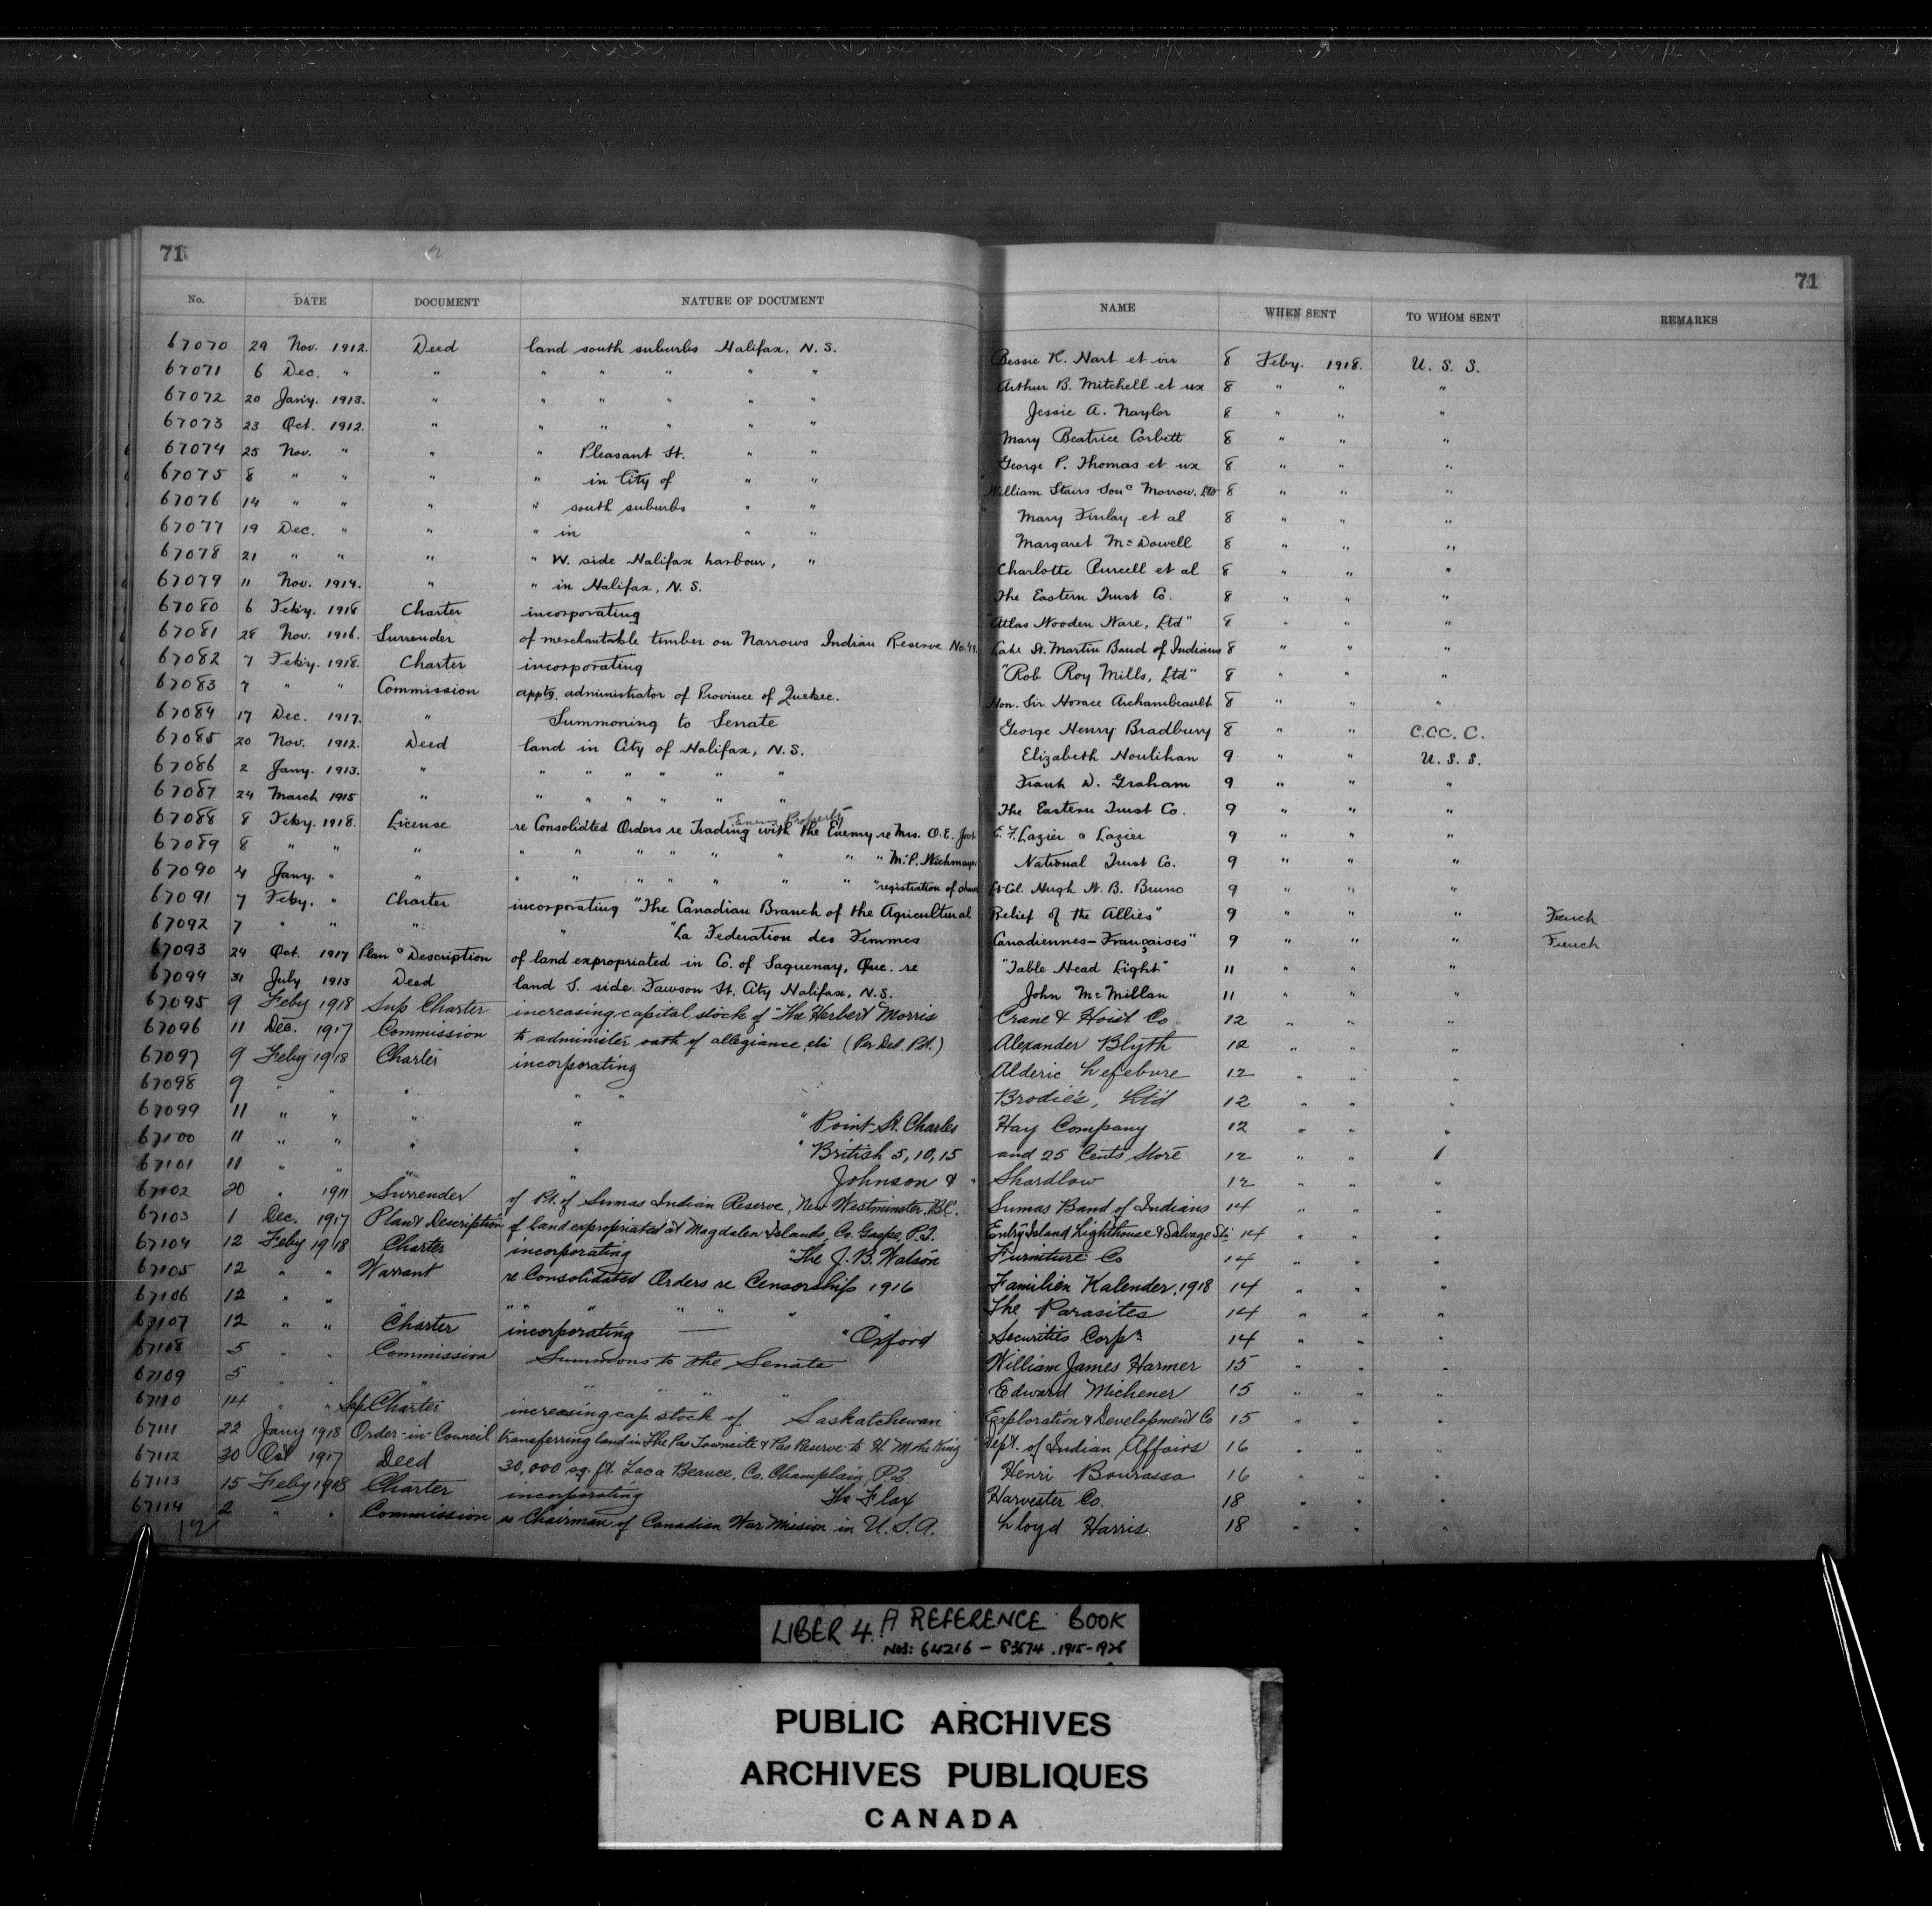 71 71
No. DATE DOCUMENT NATURE OF DOCUMENT NAME WHEN SENT TO WHOM SENT REMARKS
67070 29 Nov. 1912. Deed land south suburbs Halifax, N. S. Bessie K. Hart et vir 8 Feby. 1918. U. S. S.
67071 6 Dec. " " " " " " " Arthur B. Mitchell et ux 8 " " "
67072 20 Jany. 1913. " " " " " " Jessie A. Naylor 8 " " "
67073 23 Oct. 1912. " " " " " " Mary Beatrice Corbett 8 " " "
67074 25 Nov. " " " Pleasant St. " " George P. Thomas et ux 8 " " "
67075 8 " " " " in City of " " William Stairs Son & Morrow, Ltd 8 " " "
67076 14 " " " " south suburbs " " Mary Finlay et al 8 " " "
67077 19 Dec. " " " in " " Margaret McDowell 8 " " "
67078 21 " " " " W. side Halifax harbour, " Charlotte Purcell et al 8 " " "
67079 11 Nov. 1914. " " in Halifax, N. S. The Eastern Trust Co. 8 " " "
67080 6 Feby. 1918 Charter incorporating "Atlas Wooden Ware, Ltd" 8 " " "
67081 28 Nov. 1916. Surrender of merchantable timber on Narrows Indian Reserve No. 49. Lake St. Martin Band of Indians 8 " " "
67082 7 Feby. 1918. Charter incorporating "Rob Roy Mills, Ltd" 8 " " "
67083 7 " " Commission apptg. administrator of Province of Quebec. Hon. Sir Horace Archambeault 8 " " "
67084 17 Dec. 1917. " Summoning to Senate George Henry Bradbury 8 " " C.CC. C.
67085 20 Nov. 1912. Deed land in City of Halifax, N. S. Elizabeth Houlihan 9 " " U. S. S.
67086 2 Jany. 1913. " " " " " " " Frank W. Graham 9 " " "
67087 24 March 1915 " " " " " " " The Eastern Trust Co. 9 " " "
Enemy Property
67088 8 Feby. 1918. License re Consolidted Orders re Trading with the Enemy re Mrs. O. E. E. F. Lazier & Lazier 9 " " "
67089 8 " " " " " " " " " " " M. P. National Trust Co. 9 " " "
67090 4 Jany. " " " " " " " " " " registration of Lt-Col. Hugh W. B. Bruno 9 " " "
67091 7 Feby. " Charter incorporating "The Canadian Branch of the Agricultural Relief of the Allies" 9 " " " French
67092 7 " " " " "La Federation des Femmes Canadiennes-Françaises" 9 " " " French
67093 24 Oct. 1917 Plan & Description of land expropriated in Co. of Saguenay, Que. re "Table Head Light" 11 " " "
67094 31 July 1913 Deed land S. side Fawson St. City Halifax, N.S. John McMillan 11 " " "
67095 9 Feby 1918 Sup Charter increasing capital stock of "The Herbert Morris Crane & Hoist Co 12 " " "
67096 11 Dec. 1917 Commission to administer oath of allegiance, etc (Per Ded. Pot.) Alexander Blyth 12 " " "
67097 9 Feby 1918 Charter incorporating Alderic Lefebure 12 " " "
67098 9 " " " " " Brodie's, Ltd 12 " " "
67099 11 " " " " " Point St. Charles Hay Company 12 " " "
67100 11 " " " " " British 5, 10, 15 and 25 Cents Store 12 " " "
67101 11 " " " " Johnson & Shardlow 12 " " "
67102 20 " 1911 Surrender of Pt. of Sumas Indian Reserve, New Westminster, B.C. Sumas Band of Indians 14 " " "
67103 1 Dec. 1917 Plan & Description of land expropriated at Magdalen Islands, Co. Gaspe, P.Q. Entry Island Lighthouse & Salvage Stn 14 " " "
67104 12 Feby 1918 Charter incorporating "The J. B. Watson Furniture Co 14 " " "
67105 12 " " Warrant re Consolidated Orders re Censorship 1916 Familien Kalender, 1918 14 " " "
67106 12 " " " " " " " " " " The Parasites 14 " " "
67107 12 " " Charter incorporating — " Oxford Securities Corpn 14 " " "
67108 5 " " Commission Summons to the Senate William James Harmer 15 " " "
67109 5 " " " " " " " Edward Michener 15 " " "
67110 14 " " Sup. Charter increasing cap stock of Saskatchewan Exploration & Development Co 15 " " "
67111 22 Jany 1918 Order-in-Council transferring land in The Pas Townsite & Pas Reserve to H. M the King Dept. of Indian Affairs 16 " " "
67112 30 Oct 1917 Deed 30,000 sq. ft. Lac a Beauce, Co. Champlain, P.Q. Henri Bourassa 16 " " "
67113 15 Feby 1918 Charter incorporating The Flax Harvester Co. 18 " " "
67114 2 " " Commission as Chairman of Canadian War Mission in U. S. A. Lloyd Harris 18 " " "
LIBER 4. A REFERENCE BOOK
NOS: 64216 - 83674 . 1915-1926
PUBLIC ARCHIVES
ARCHIVES PUBLIQUES
CANADA